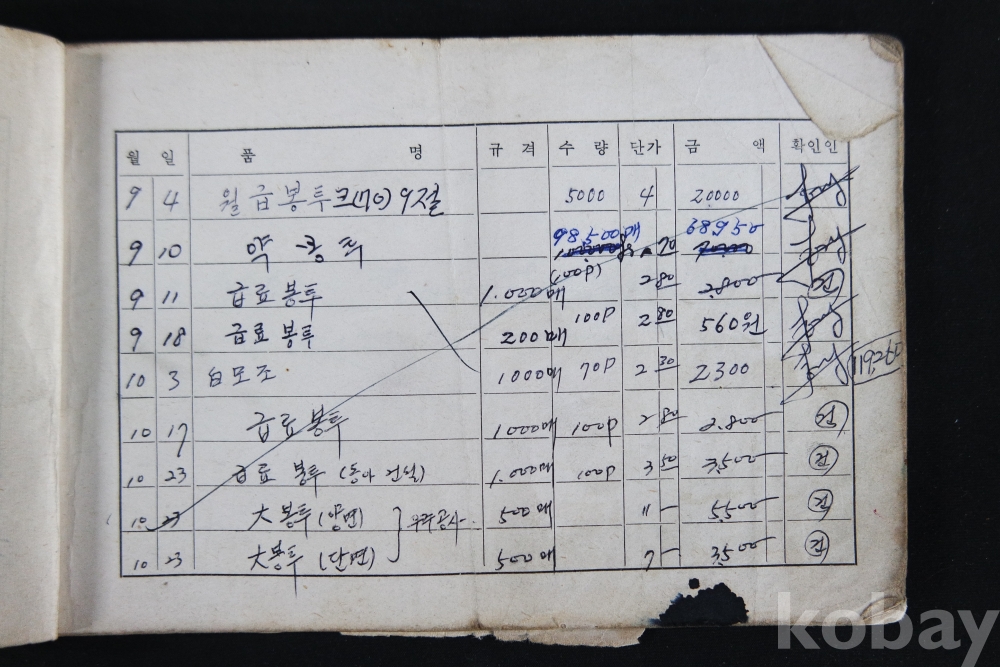 월 일 품 명 규격 수량 단가 금 액 확인인
9 4 월급봉투 크(70) 9절 5000 4 20000
98,500매 68950
9 10 약봉투 20
9 11 급료봉투 1.000매 100p 2 80 2,800
9 18 급료봉투 200매 100p 2 80 560원
10 3 白모조 1000매 70p 2 30 2300
10 17 급료봉투 1000매 100p 2 80 2.800
10 23 급료 봉투 (동아 건설) 1.000매 100p 3 50 3,500
10 23 大봉투 (양면) 500매 11 5,500
10 23 大봉투 (단면) 500매 7 3,500
kobay